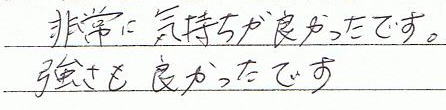 非常に気持ちが良かったです。
強さも良かったです